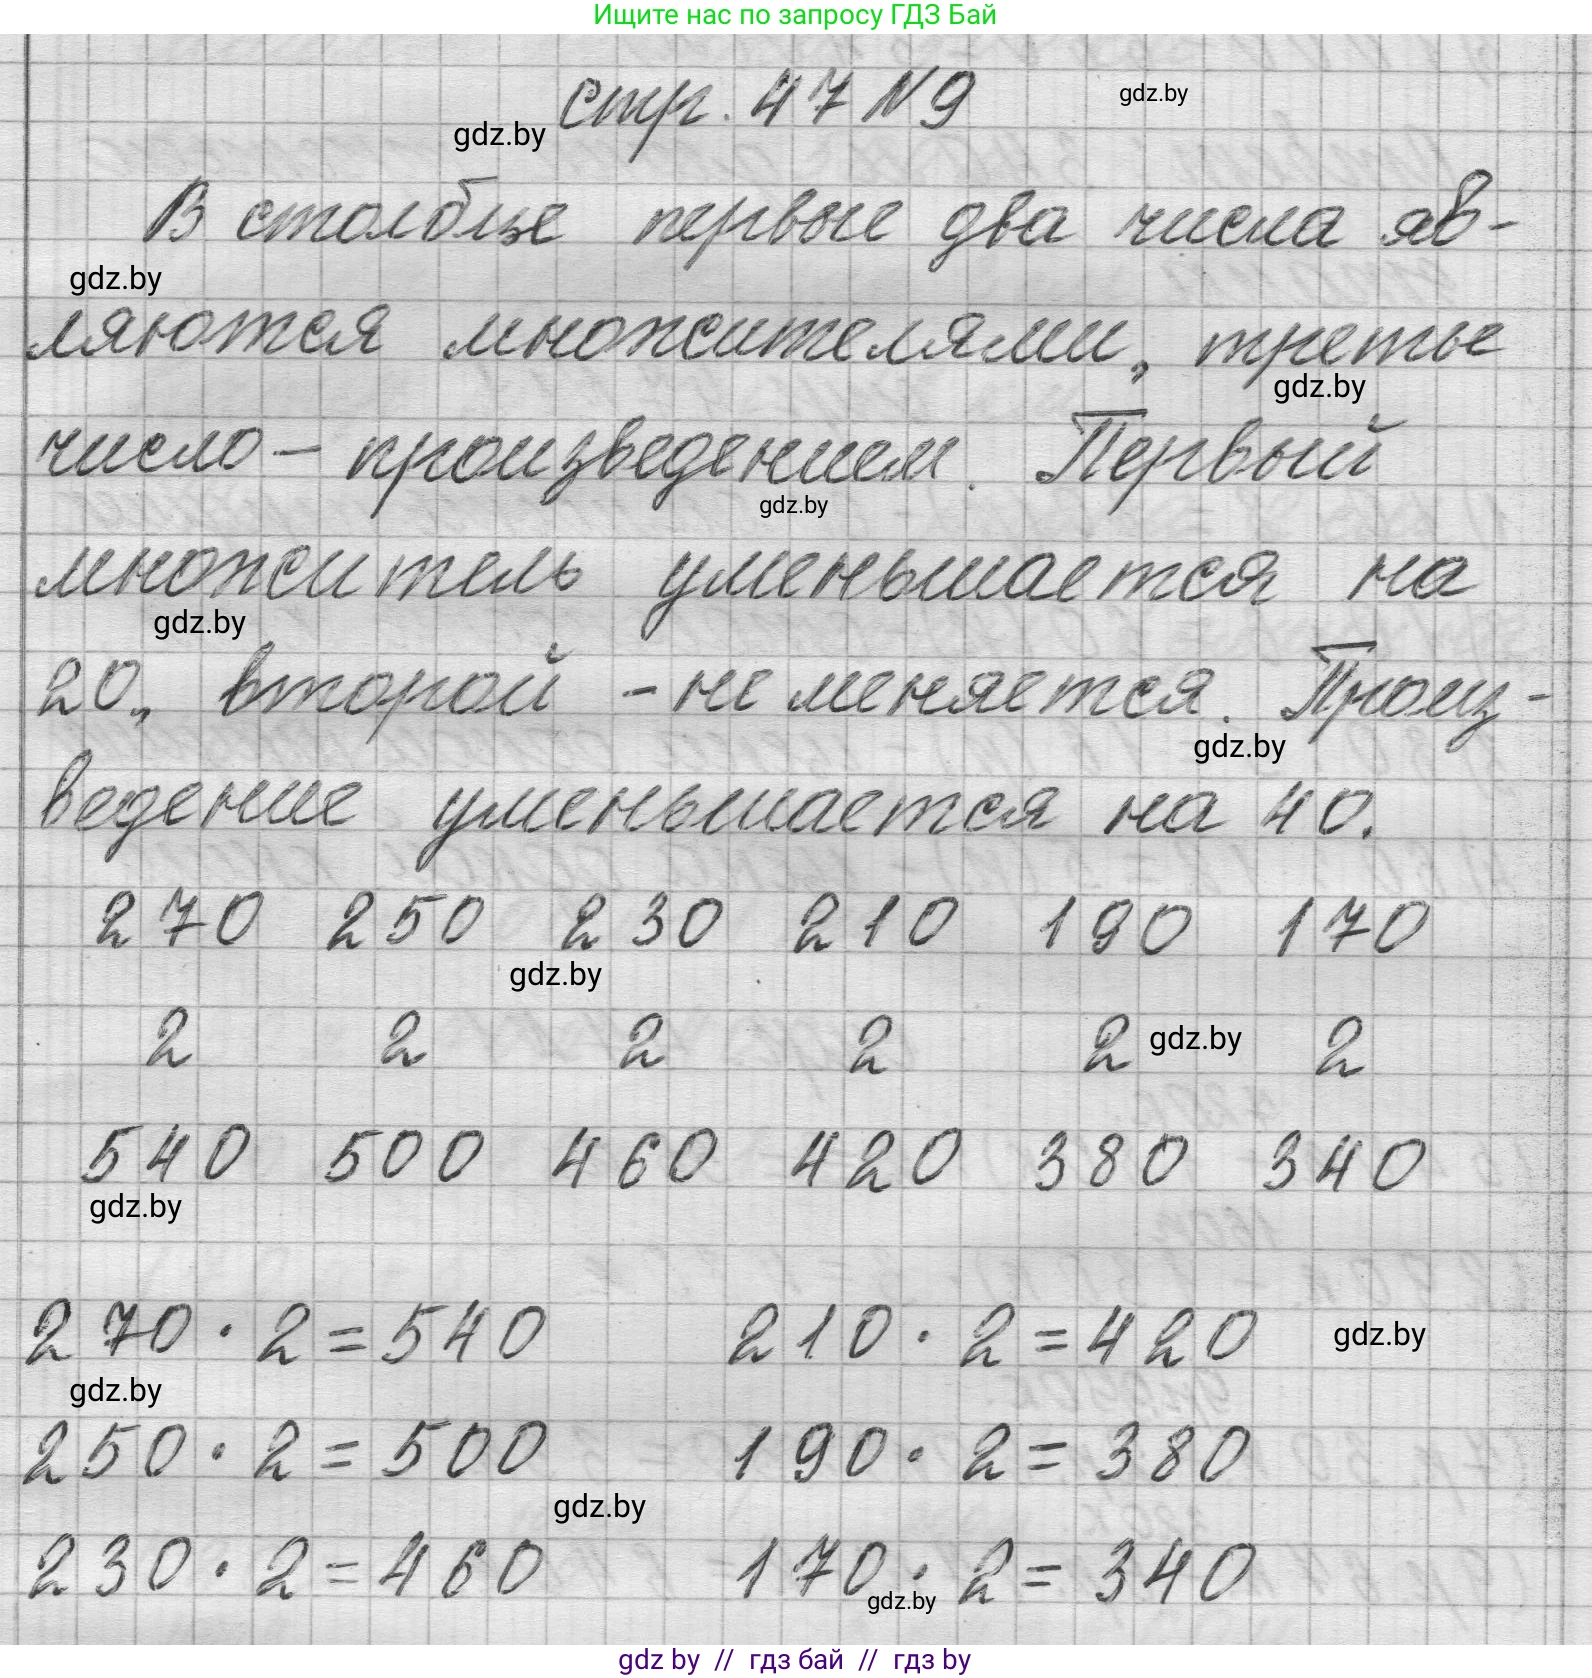 Ищите нас по запросу ГДЗ Бай
стр. 47 №9
gdz.by
gdz.by
В столбце первые два числа яв-
gdz.by
ляются множителями, третье
gdz.by
число - произведением. Первый
gdz.by
множитель уменьшается на
gdz.by
20, второй - не меняется. Произ-
gdz.by
ведение уменьшается на 40.
270 250 230 210 190 170
gdz.by
2 2 2 2 2 2
gdz.by
540 500 460 420 380 340
gdz.by
270 · 2 = 540 210 · 2 = 420
gdz.by
gdz.by
250 · 2 = 500 190 · 2 = 380
gdz.by
230 · 2 = 460 170 · 2 = 340
gdz.by
gdz by // гдз бай // гдз by